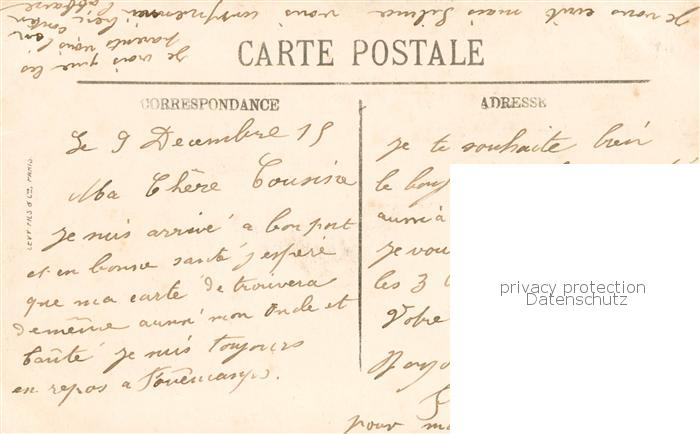 Je vous écrit mais Silence vous
Je vois que les
parents vous
bien
CARTE POSTALE
CORRESPONDANCE
ADRESSE
LEVY FILS & Cie, PARIS
Le 9 Decembre 15
Ma Chère Cousine
Je suis arrivé a bon port
et en bonne santé j'espère
que ma carte de trouvera
de même aussi mon Oncle et
Je suis toujours
en repos a
Je te souhaite bien
le
aussi à
Je vou
les 3
Votre
pour m
privacy protection
Datenschutz